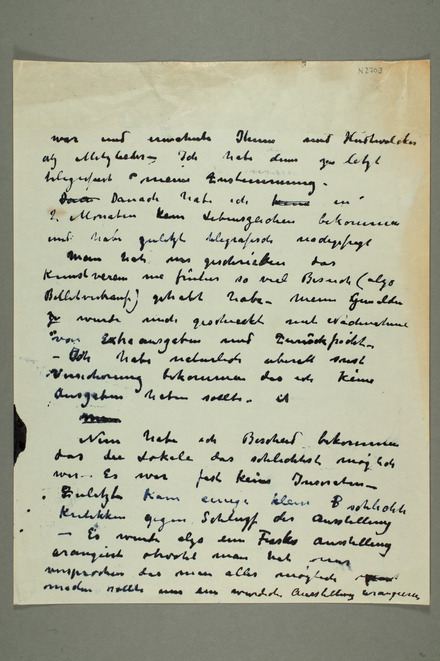 N 2703
war und Ihnen und Hudtwalcker
als Mitglieder – Ich habe dann zu letzt
telegrafiert meine Zustimmung.
Danach habe ich in
2 Monaten kein Lebenszeichen bekommen
und habe zuletzt telegrafisch
Man hat mir geschrieben das
Kunstverein nie früher so viel Besuch (also
Billetverkauf) gehabt habe – meine Gemälde
wurde mich geschickt mit Nachnahme
von Extraausgaben und Zurückfracht. –
– Ich habe natürlich überall sonst
Versicherung bekommen das ich keine
Ausgaben haben sollte.
Nun habe ich Bescheid bekommen
das die Lokale das schlechtest möglich
war – Es war fast keine –
Zuletzt kam einige klein schlechte
Kritikken gegen Schluss der Ausstellung
– Es wurde also eine Ausstellung
arangirt obwohl man hat mir
versprochen das man alles möglich
machen sollte um eine würdich Ausstellung arangieren